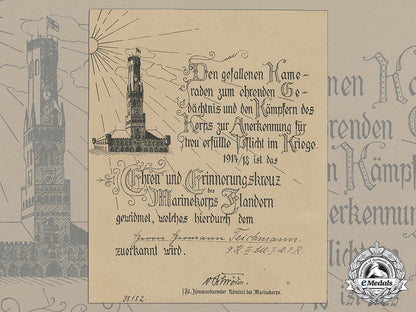 Den gefallenen Kame-
raden zum ehrenden Ge-
dächtnis und den Kämpfern des
Korps zur Anerkennung für
treu erfüllte Pflicht im Kriege
1914/18 ist das
Ehren- und Erinnerungskreuz
des
Marinekorps Flandern
gewidmet, welches hierdurch dem
Herrn Hermann Teichmann
zuerkannt wird.
Admiral des Marinekorps.
eMedals